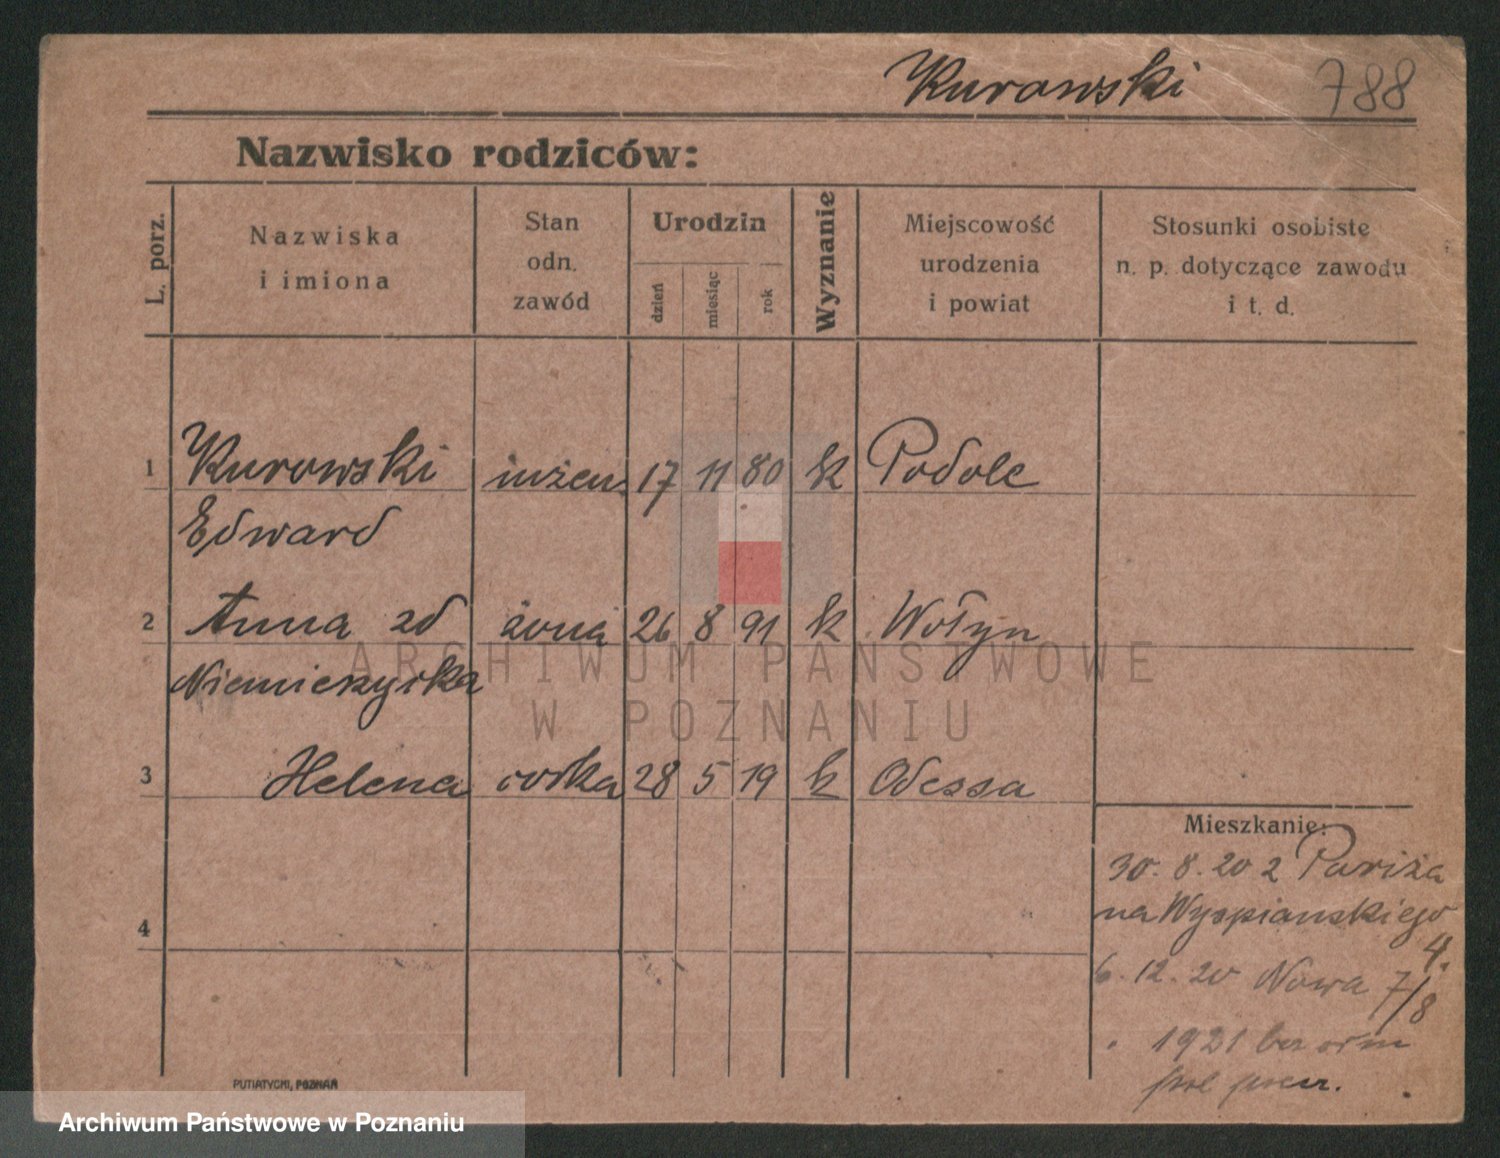 Kurowski 788
Nazwisko rodziców:
L. porz.
Nazwiska
i imiona
Stan
odn.
zawód
Urodzin
dzień miesiąc rok
Wyznanie
Miejscowość
urodzenia
i powiat
Stosunki osobiste
n. p. dotyczące zawodu
i t. d.
1 Kurowski inżen. 17 11 80 k Podole
Edward
2 Anna zd żona 26 8 91 k Wołyn
ARCHIWUM PAŃSTWOWE
W POZNANIU
3 Helena corka 28 5 19 k Odessa
Mieszkanie:
30. 8. 20 z Pariża
na Wyspianskiego
4.
4
6. 12. 20 Nowa 7/8
1921
PUTIATYCKI, POZNAŃ
Archiwum Państwowe w Poznaniu